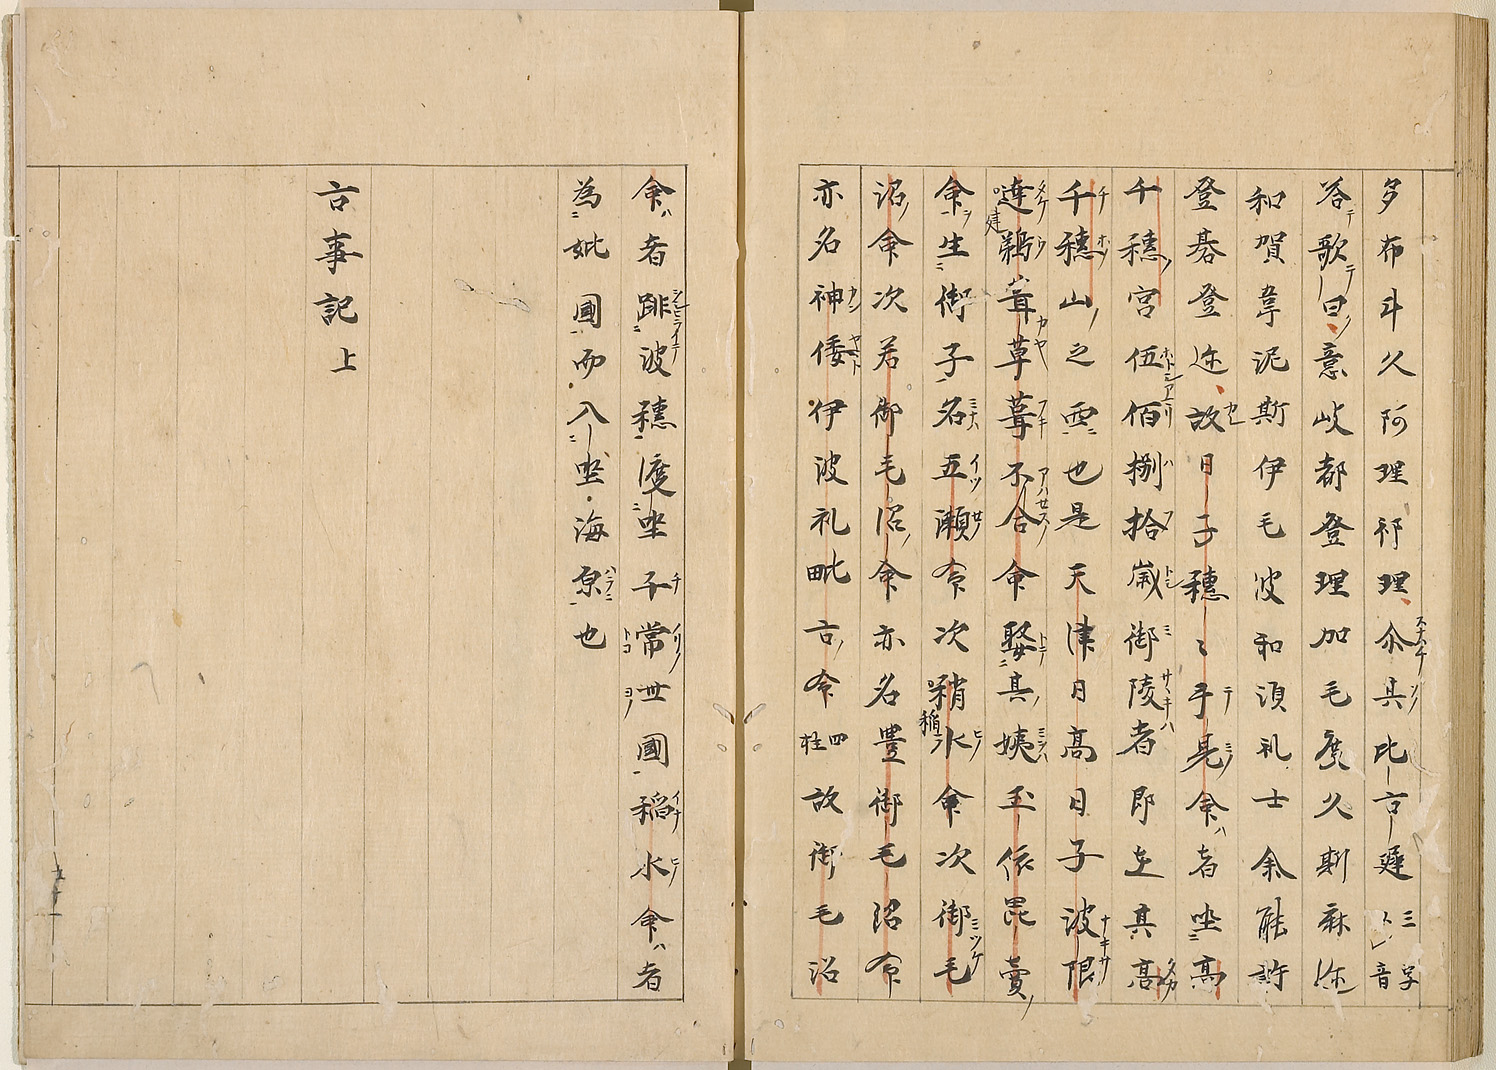 多布斗久阿理祁理尓其比古遅三字以音
答歌曰意岐都登理加毛度久斯麻迩
和賀韋泥斯伊毛波和須礼士余能許
登碁登迩故日子穂々手見命者坐高
千穂宮伍佰捌拾歳御陵者即在其高
千穂山之西也是天津日高日子波限
建鵜葺草葺不合命娶其姨玉依毘賣
命生御子名五瀬命次稍氷命次御毛
沼命次若御毛沼命亦名豊御毛沼命
亦名神倭伊波礼毗古命柱四故御毛沼
命者跳波穂渡坐于常世國稲氷命者
為妣國而入坐海原也
古事記上